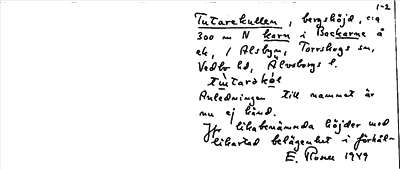 1-2
Tutarekullen, bergshöjd, c:a
300 m N karn i Backarne å
ek, i Alsbyn, Torrskogs sn,
Vedbo hd, Älvsborgs l.
Anledningen till namnet är
nu ej känd.
Jfr likabenämnda höjder med
likartad belägenhet i förhål-
E. Rosen 1949